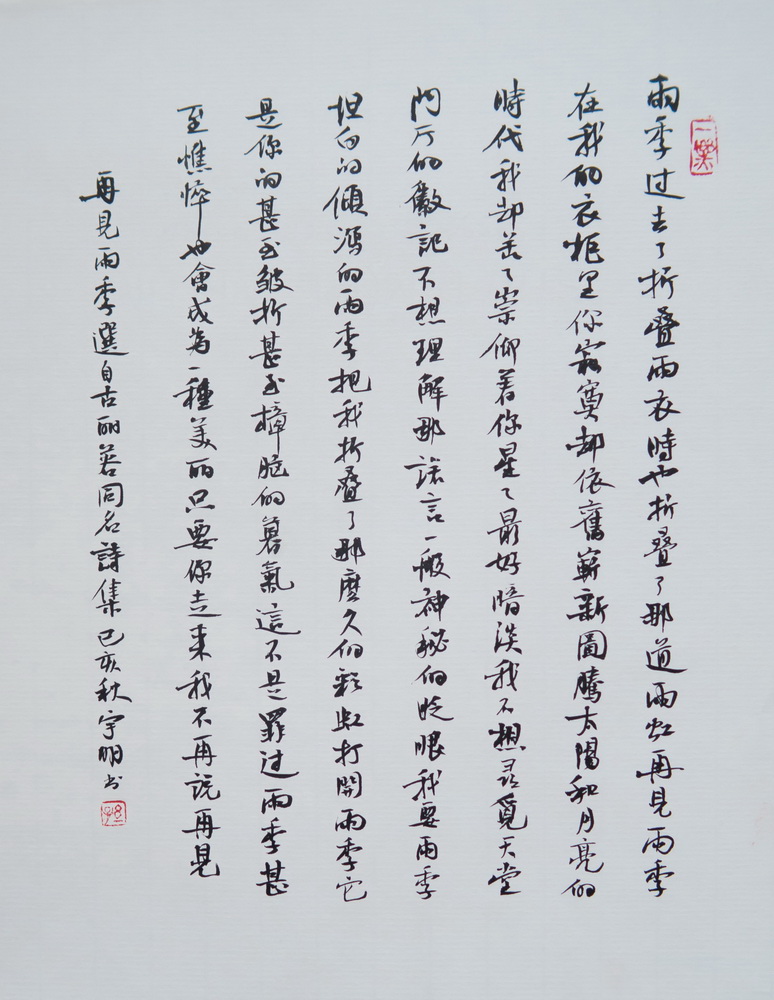 雨季过去了折叠雨衣時也折叠了那道雨虹再見雨季
在我的衣柜里你寂寞却依舊嶄新圖騰太陽和月亮的
時代我却丢了崇仰着你星々最好暗淡我不想尋覓天堂
門厅的徽記不想理解那謠言一般神秘的眨眼我要雨季
坦白的傾瀉的雨季把我折叠了那麼久的彩虹打開雨季它
是你的甚至皱折甚至樟脑的暮氣這不是罪过雨季甚
至憔悴也會成為一種美丽只要你走来我不再説再見
再見雨季選自古丽蓉同名詩集己亥秋宇明书